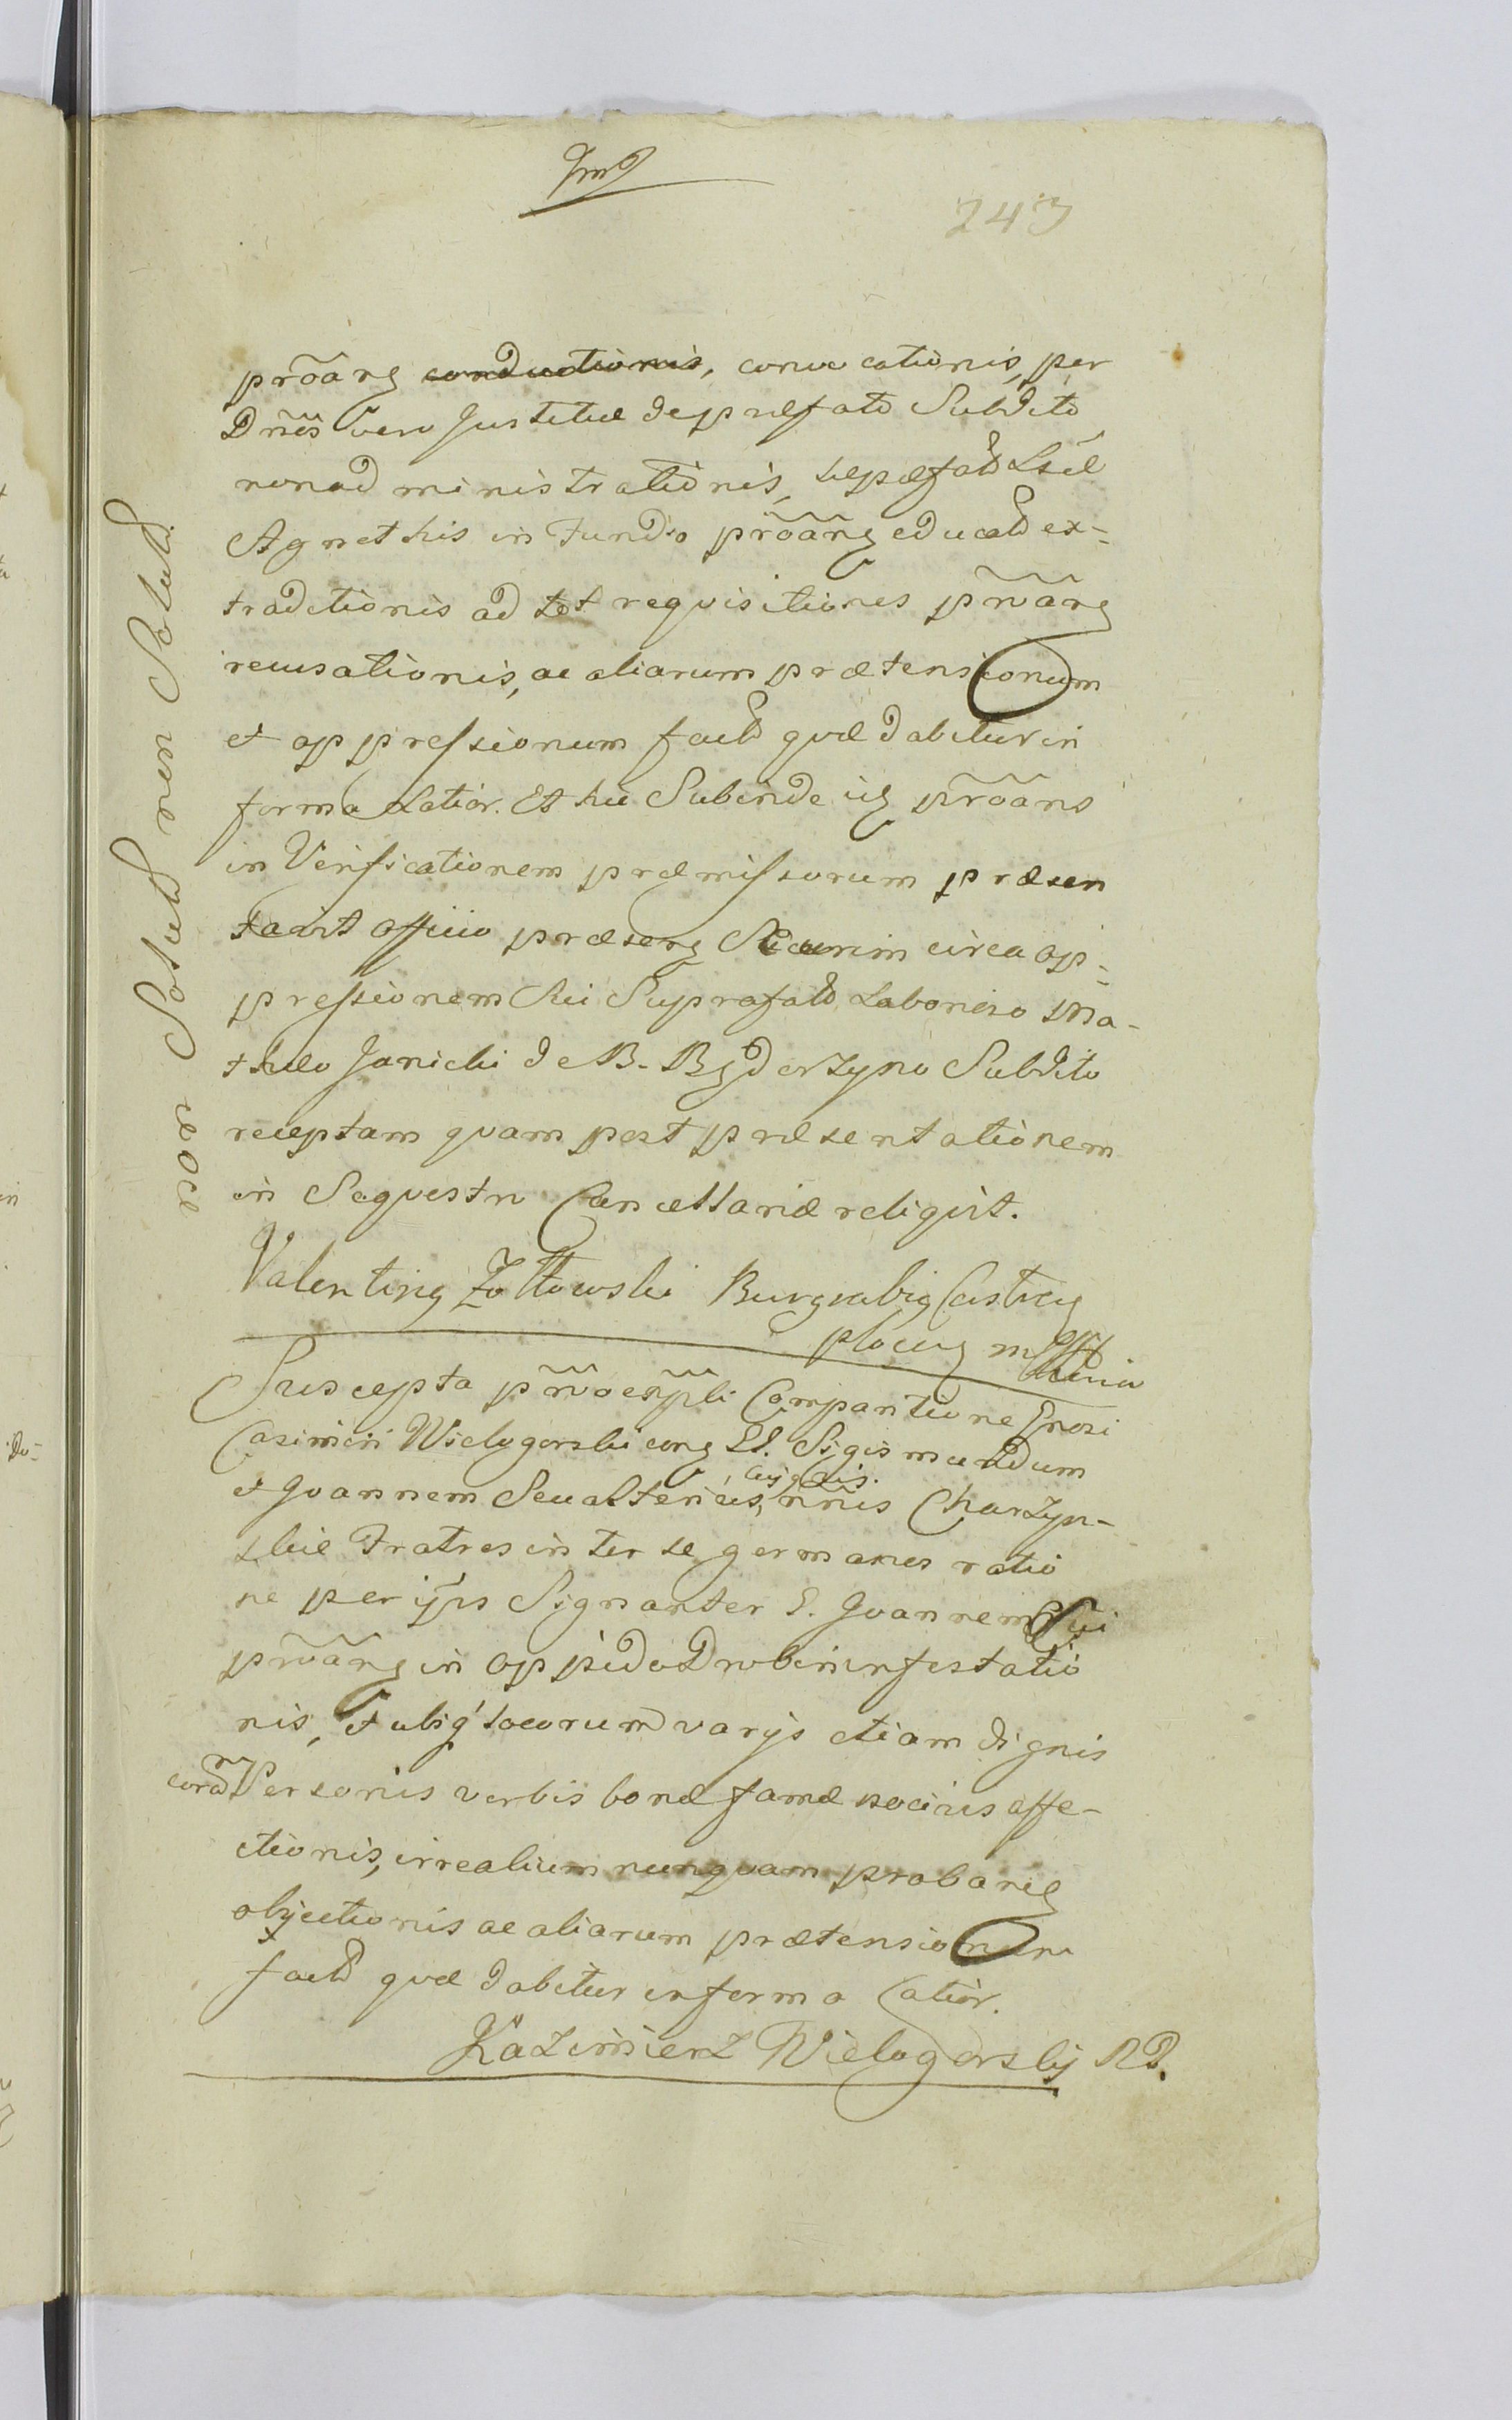 243
prõarg conductionis, convocationis, per
Dñes vero Justitiæ de præfato Subdito
non ad ministrationis, 
Agnethis in Fundo prõarg educat ex-
traditionis ad tot requisitiones prõarg
recusationis, ac aliarum prætensionum
et oppressionum fact quæ dabitur in
forma Latior. Et hic Subinde prõans
in Verificationem præmissorum præsen
tavit officio circa op-
pressionem Sui Suprafat Laborioso Ma-
theo Janicki de B. Subdito
receptam quam post præsentationem
in Sequestro Cancellariæ reliquit.
Valenting Zołtowski Burgrabig Castreg
ploceg
Suscepta Compartione Gnosi
Casimiri Wielogorski cong LL. Sigismundum
et Joannem Seu alterius, nñis Charzyn-
skie Fratres inter se germanes ratio
ne per ip̃s Signanter L. Joannem Sui
prõarg in oppido Drobin infestatio
nis, et ubiq locorum varijs etiam dignis
corã Personis verbis bonæ famæ nocivis affe-
ctionis, irrealium nunquam probarig
objectionis ac aliarum prætensionum
fact quæ dabitur in forma Latior.
Kazimierz Wielogorskij
eoe Solut nin Solut